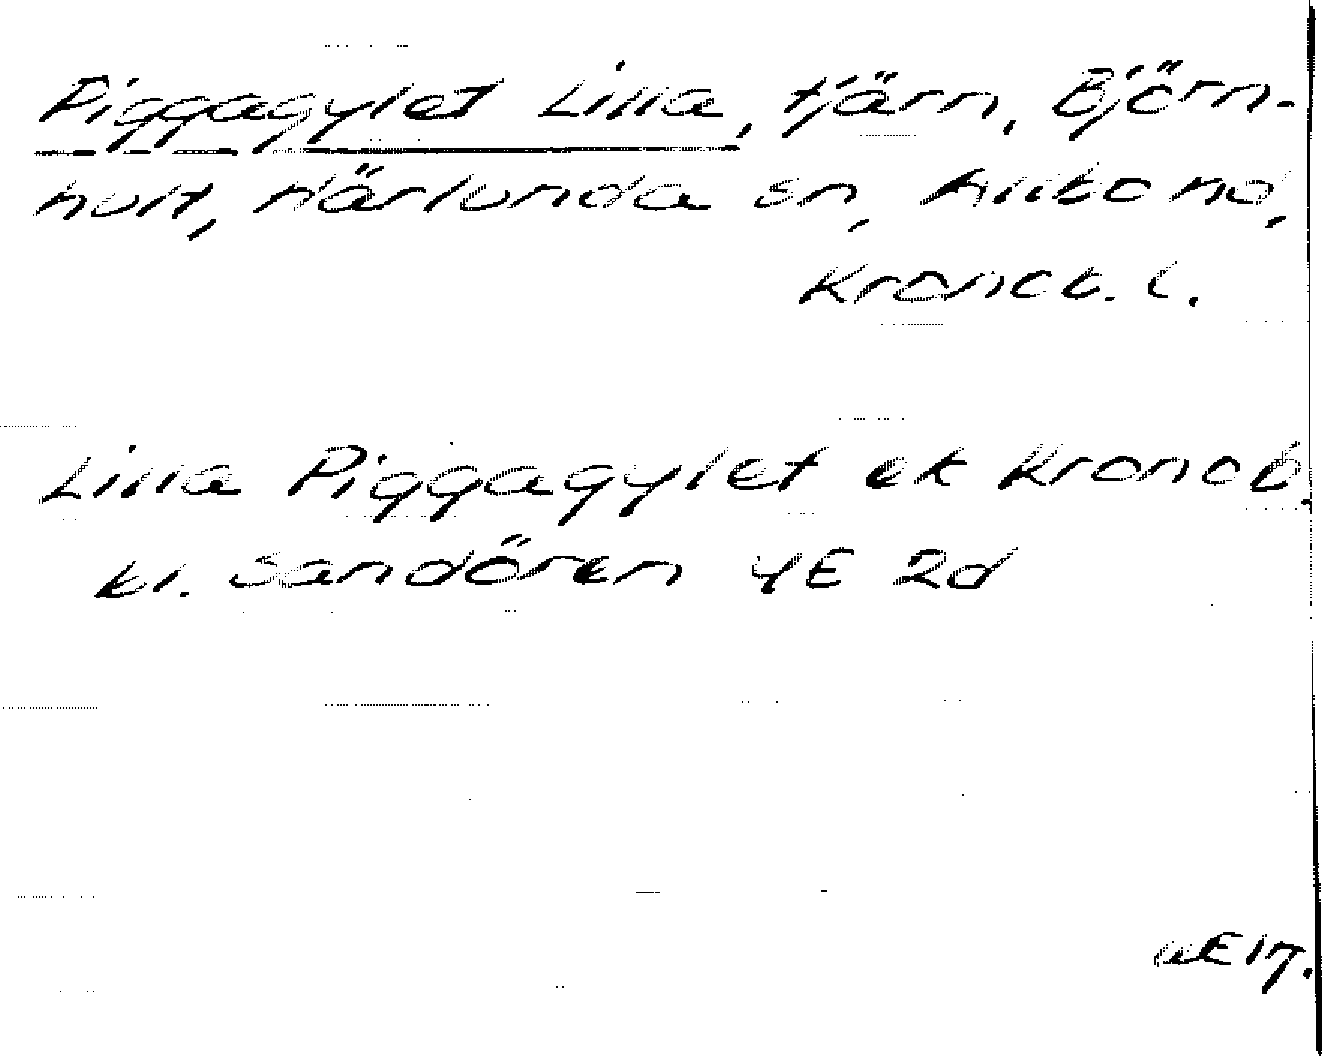 Piggagylet Lilla, tjärn, Björn-
hult, Härlunda sn, Allbo hd,
Kronob. l.
Lilla Piggagylet ek Kronob.
bl. Sandören 4E 2d